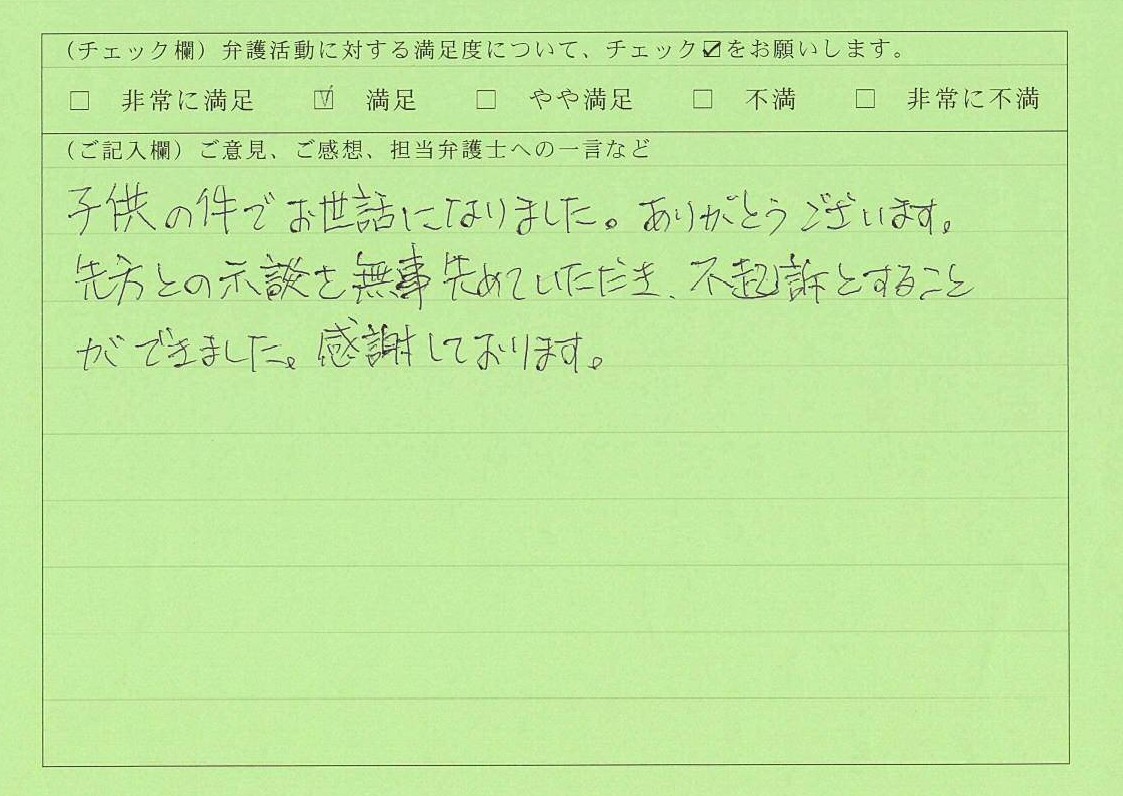 （チェック欄）弁護活動に対する満足度について、チェック☑をお願いします。
□ 非常に満足 ☑ 満足 □ やや満足 □ 不満 □ 非常に不満
（ご記入欄）ご意見、ご感想、担当弁護士への一言など
子供の件でお世話になりました。ありがとうございます。
先方との示談を無事先めていただき、不起訴とすること
ができました。感謝しております。